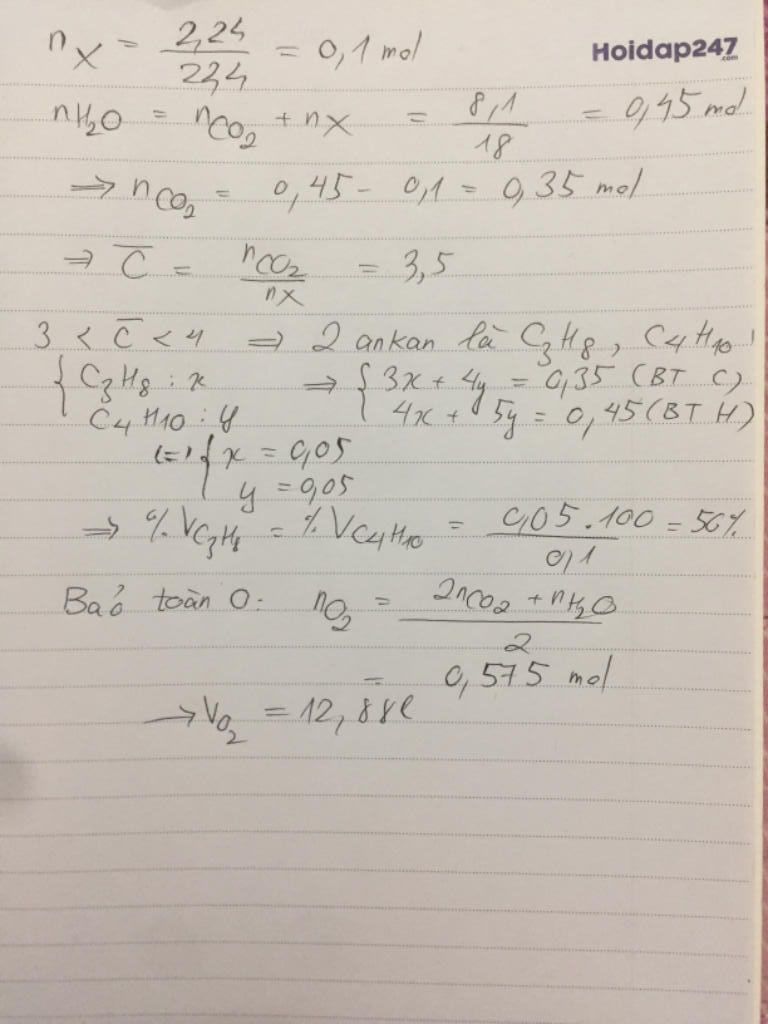 n_X = 2,24 / 22,4 = 0,1 mol
Hoidap247.com
nH₂O = n_CO₂ + nX = 8,1 / 18 = 0,45 mol
=> n_CO₂ = 0,45 - 0,1 = 0,35 mol
=> C̅ = n_CO₂ / nX = 3,5
3 < C̅ < 4 => 2 ankan là C₃H₈, C₄H₁₀
{ C₃H₈ : x => { 3x + 4y = 0,35 (BT C)
C₄H₁₀ : y 4x + 5y = 0,45 (BT H)
(=) { x = 0,05
y = 0,05
=> % V_C₃H₈ = % V_C₄H₁₀ = 0,05 . 100 / 0,1 = 50%
Bảo toàn O: n_O₂ = 2n_CO₂ + nH₂O / 2
= 0,575 mol
→ V_O₂ = 12,88l